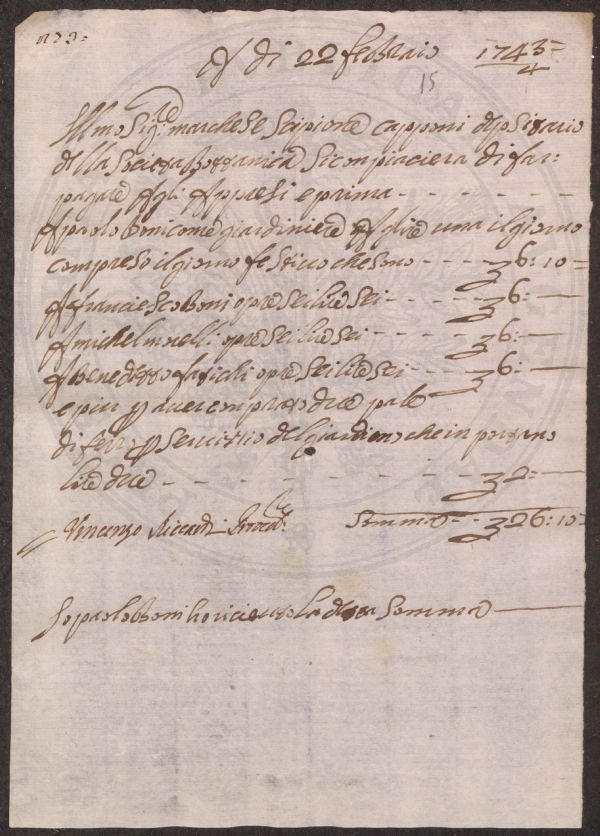 n 33=
A di 22 febraio 1743=
4
15
Ill.mo Sig.re marchese Scipione Capponi depositario
della Società Bottanica Si compiacierà di far=
pagare Agli Appresi e prima
A paolo Boni come giardiniere A lire una il giorno
compreso il giorno festivo che sono 6: 10=
A Franciesco Boni opre Sei lire Sei 6:
A michel opre Sei lire Sei 6:
A benedetto opre Sei lire Sei 6:
e piu p aver comprato due pale
di ferro p Servitio del giardino che in portano
lire due 2=
Vincenzo Riccardi Somma 26: 10=
Io paolo Boni ho riceuto la detta Somma